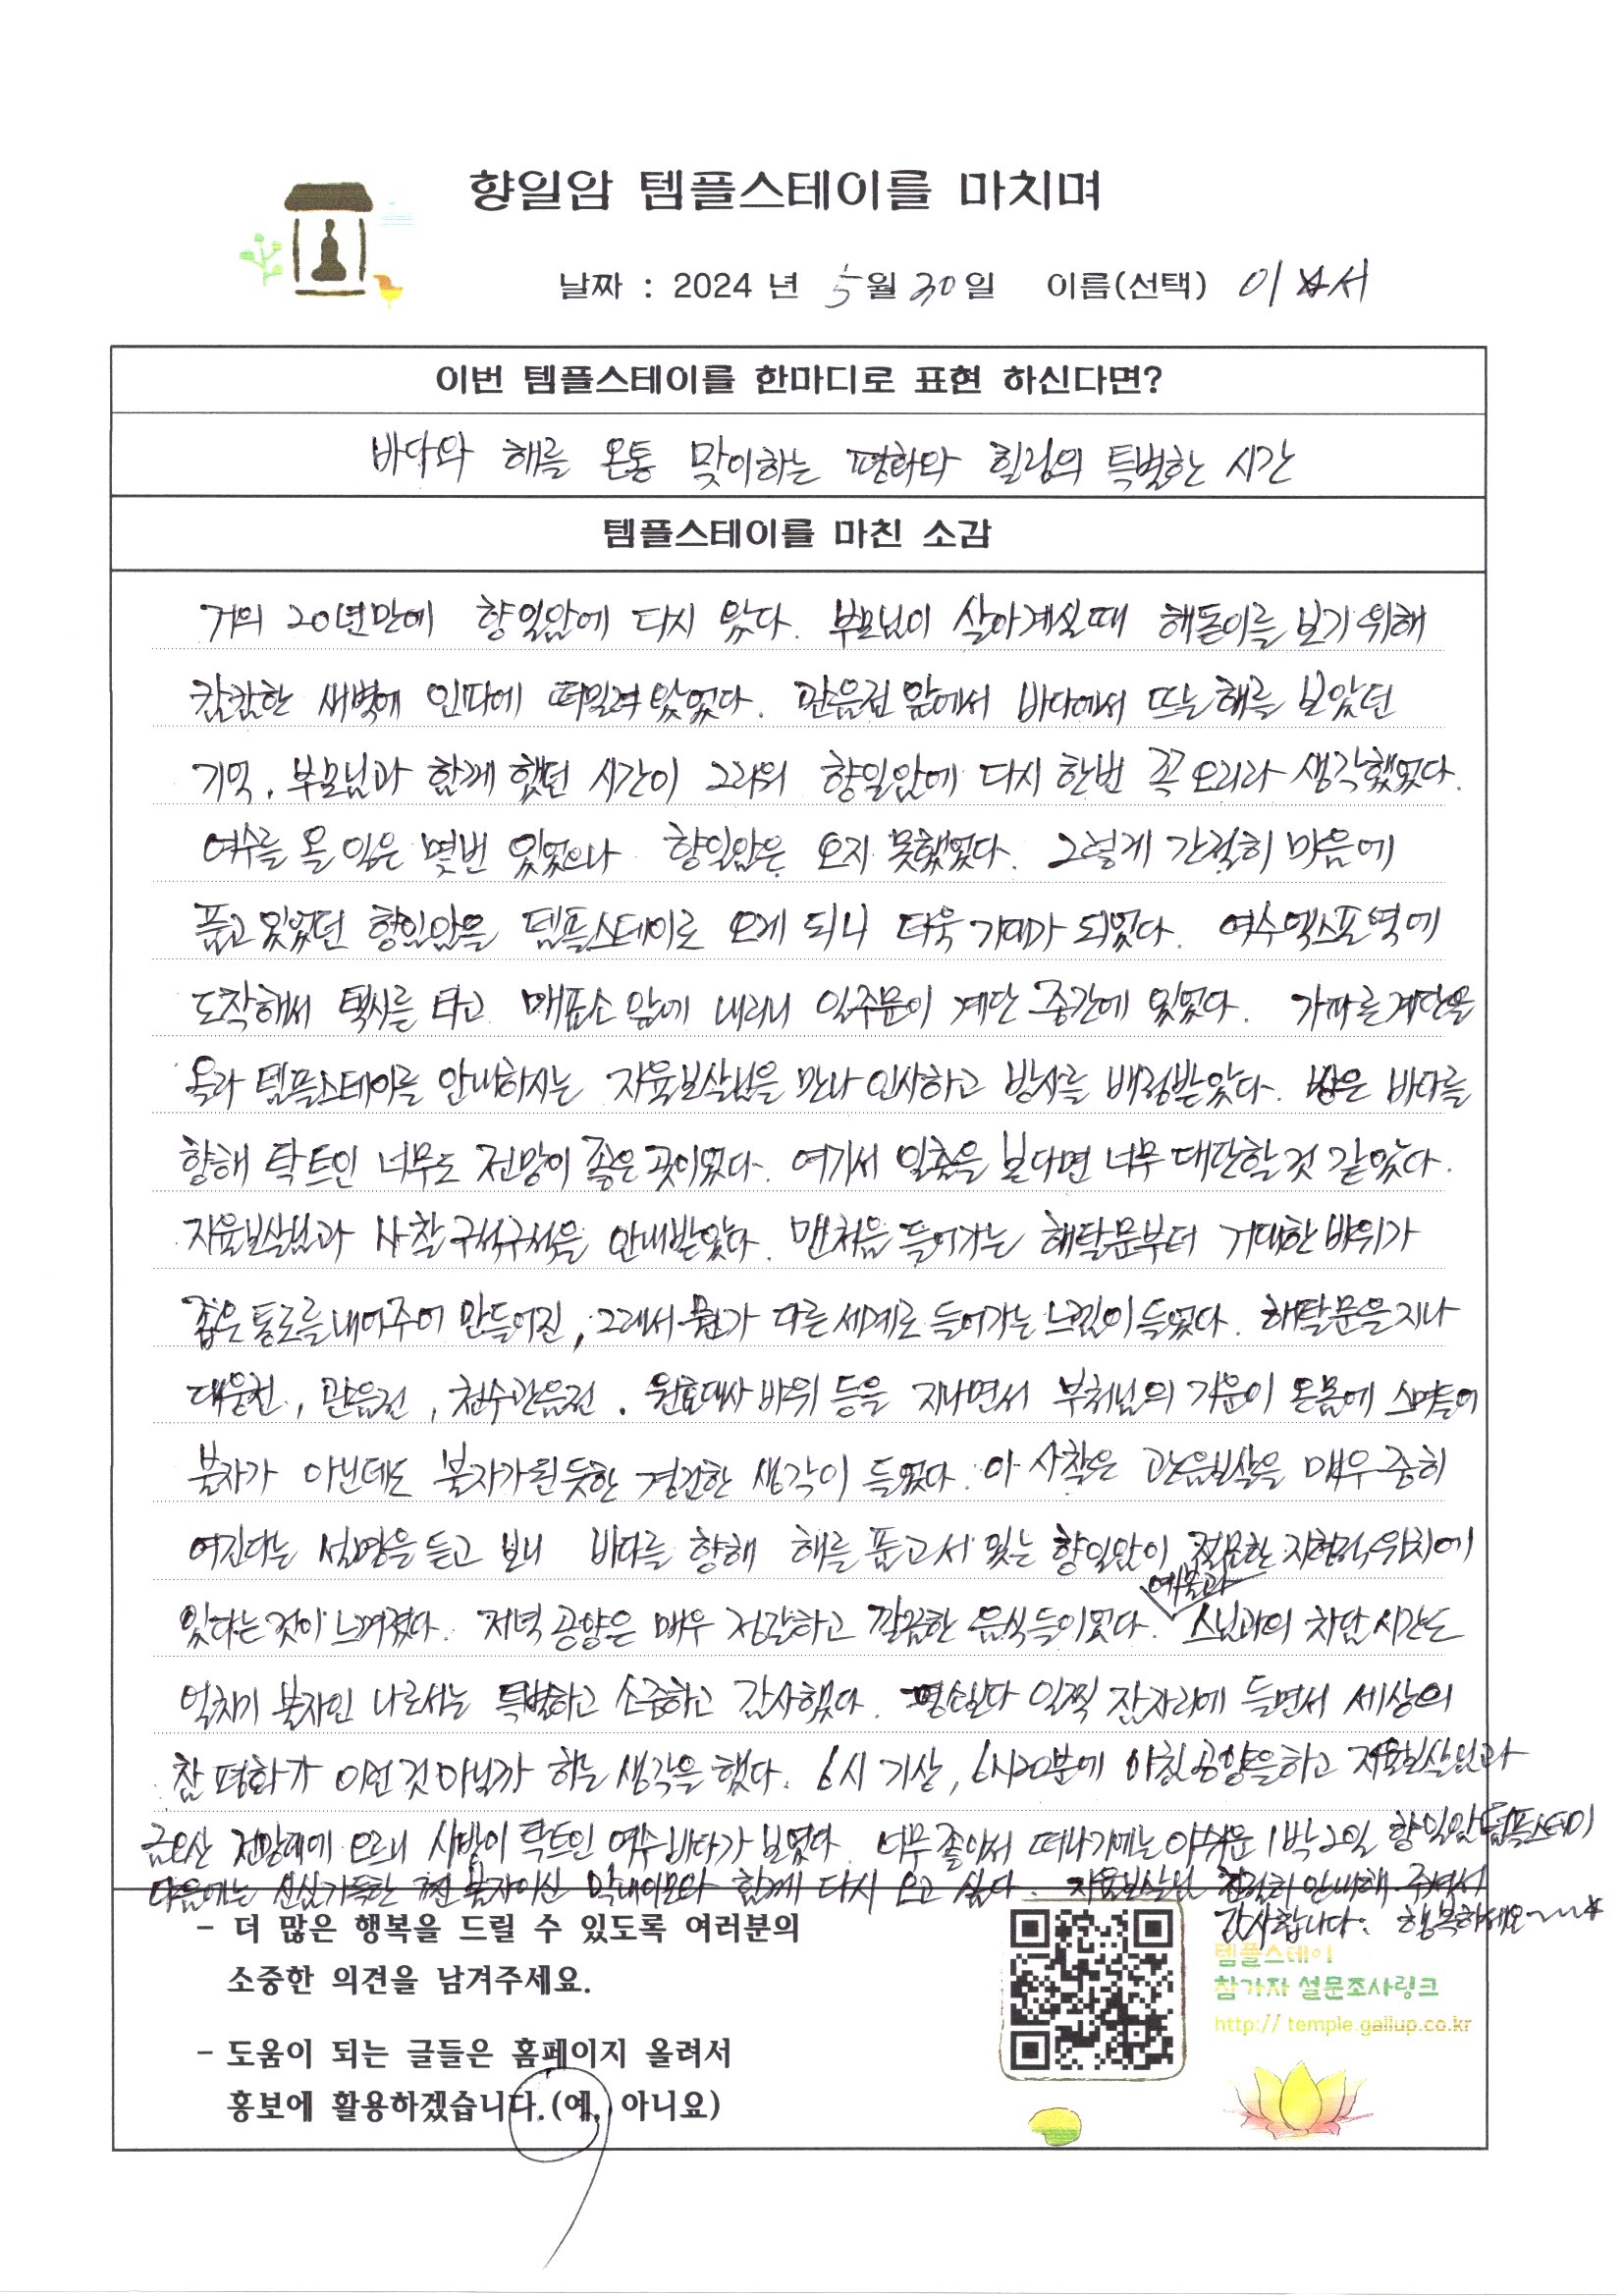 향일암 템플스테이를 마치며
날짜 : 2024 년 5월 30일 이름(선택) 이☆서
이번 템플스테이를 한마디로 표현 하신다면?
바다와 해를 온통 맞이하는 평화와 힐링의 특별한 시간
템플스테이를 마친 소감
거의 20년만에 향일암에 다시 왔다. 부모님이 살아계실때 해돋이를 보기 위해
캄캄한 새벽에 인파에 떠밀려 왔었다. 관음전 앞에서 바다에서 뜨는 해를 보았던
기억, 부모님과 함께 했던 시간이 그리워 향일암에 다시 한번 꼭 오리라 생각했었다.
여수를 올 일은 몇번 있었으나 향일암은 오지 못했었다. 그렇게 간절히 마음에
품고 있었던 향일암을 템플스테이로 오게 되니 더욱 기대가 되었다. 여수엑스포역에
도착해서 택시를 타고 매표소 앞에 내리니 일주문이 계단 중간에 있었다. 가파른 계단을
올라 템플스테이를 안내하시는 자율보살님을 만나 인사하고 방사를 배정받았다. 방은 바다를
향해 탁트인 너무도 전망이 좋은 곳이었다. 여기서 일출을 본다면 너무 대단할 것 같았다.
자율보살님과 사찰 구석구석을 안내받았다. 맨처음 들어가는 해탈문부터 거대한 바위가
좁은 통로를 내어주어 만들어진, 그래서 뭔가 다른 세계로 들어가는 느낌이 들었다. 해탈문을 지나
대웅전, 관음전, 천수관음전, 원효대사 바위 등을 지나면서 부처님의 기운이 온몸에 스며들어
불자가 아닌데도 불자가 된 듯한 경건한 생각이 들었다. 이 사찰은 관음보살을 매우 중히
여긴다는 설명을 듣고 보니 바다를 향해 해를 품고 서 있는 향일암이 절묘한 지형적 위치에
있다는 것이 느껴졌다. 저녁 공양은 매우 정갈하고 깔끔한 음식들이었다. 예불과 스님과의 차담 시간도
얼치기 불자인 나로서는 특별하고 소중하고 감사했다. 평소보다 일찍 잠자리에 들면서 세상의
참 평화가 이런 것 아닐까 하는 생각을 했다. 6시 기상, 6시20분에 아침공양을 하고 자율보살님과
금오산 전망대에 오르니 사방이 탁트인 여수 바다가 보였다. 너무 좋아서 떠나기에는 아쉬운 1박2일 향일암 템플스테이
다음에는 신심가득한 찐 불자이신 막내이모와 함께 다시 오고 싶다. 자율보살님 친절히 안내해 주셔서
감사합니다. 행복하세요~~
- 더 많은 행복을 드릴 수 있도록 여러분의
소중한 의견을 남겨주세요.
- 도움이 되는 글들은 홈페이지 올려서
홍보에 활용하겠습니다.(예, 아니요)
템플스테이
참가자 설문조사링크
http:// temple.gallup.co.kr